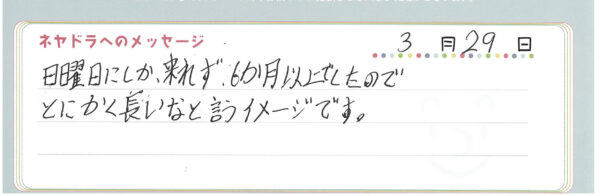 ネヤドラへのメッセージ
3月29日
日曜日にしか、来れず、6か月以上でしたので
とにかく長いなと言うイメージです。